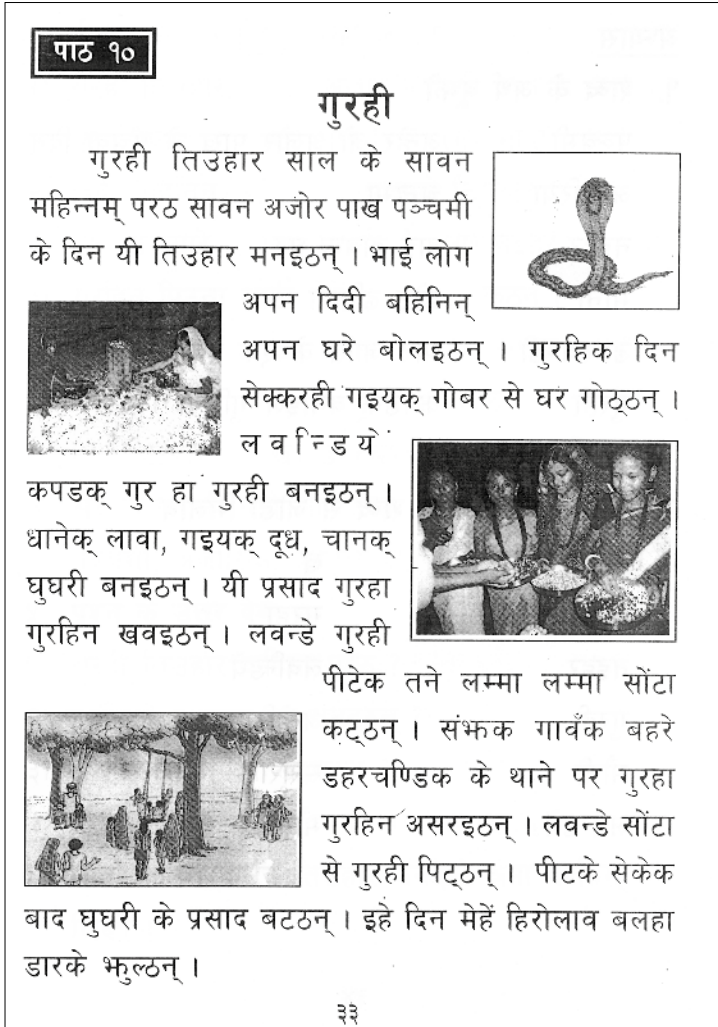 पाठ १०
गुरही
गुरही तिउहार साल के सावन
महिन्नम् परठ सावन अजोर पाख पञ्चमी
के दिन यी तिउहार मनइठन् । भाई लोग
अपन दिदी बहिनिन्
अपन घरे बोलइठन् । गुरहिक दिन
सेक्करही गइयक् गोबर से घर गोठ्ठन् ।
लवन्डिये
कपडक् गुर हा गुरही बनइठन् ।
धानेक् लावा, गइयक् दूध, चानक्
घुघरी बनइठन् । यी प्रसाद गुरहा
गुरहिन खवइठन् । लवन्डे गुरही
पीटेक तने लम्मा लम्मा सोंटा
कट्ठन् । संझक गावँक बहरे
डहरचण्डिक के थाने पर गुरहा
गुरहिन असरइठन् । लवन्डे सोंटा
से गुरही पिट्ठन् । पीटके सेकेक
बाद घुघरी के प्रसाद बटठन् । इहे दिन मेहें हिरोलाव बलहा
डारके झुल्ठन् ।
३३